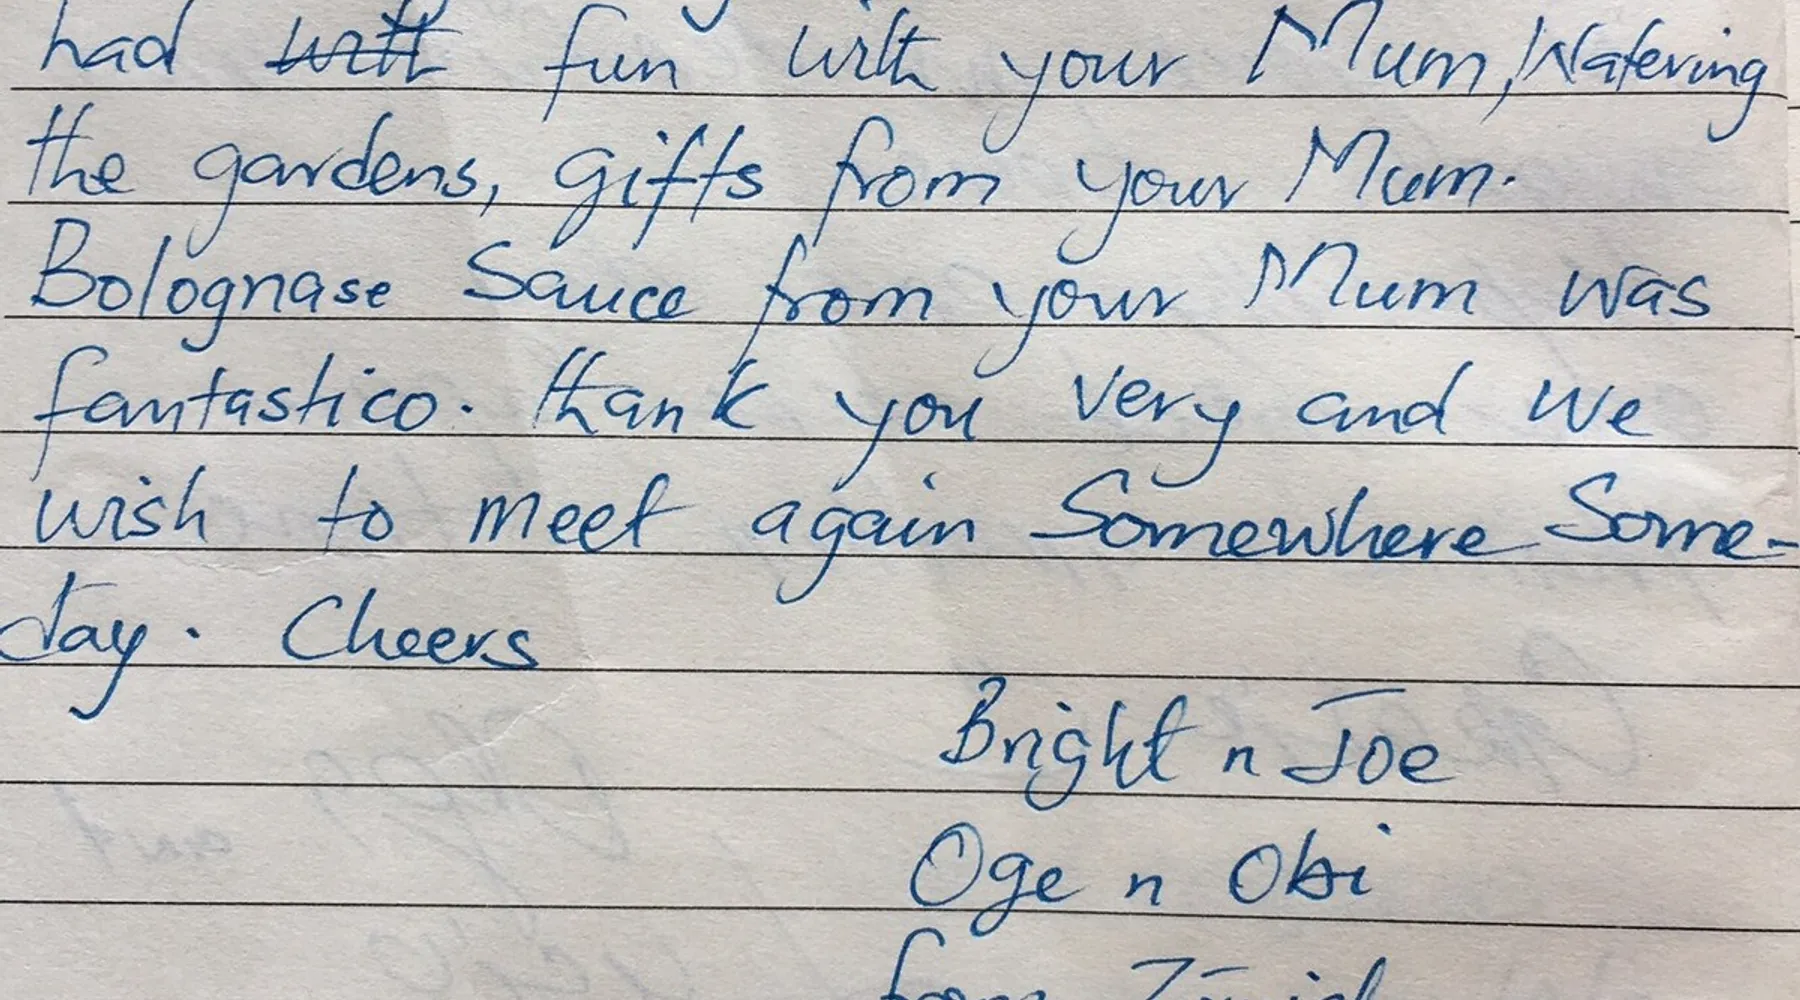 had with fun with your Mum, Watering
the gardens, gifts from your Mum.
Bolognase Sauce from your Mum was
fantastico. thank you very and we
wish to meet again Somewhere Some-
day. Cheers
Bright n Joe
Oge n Obi
from Zürich